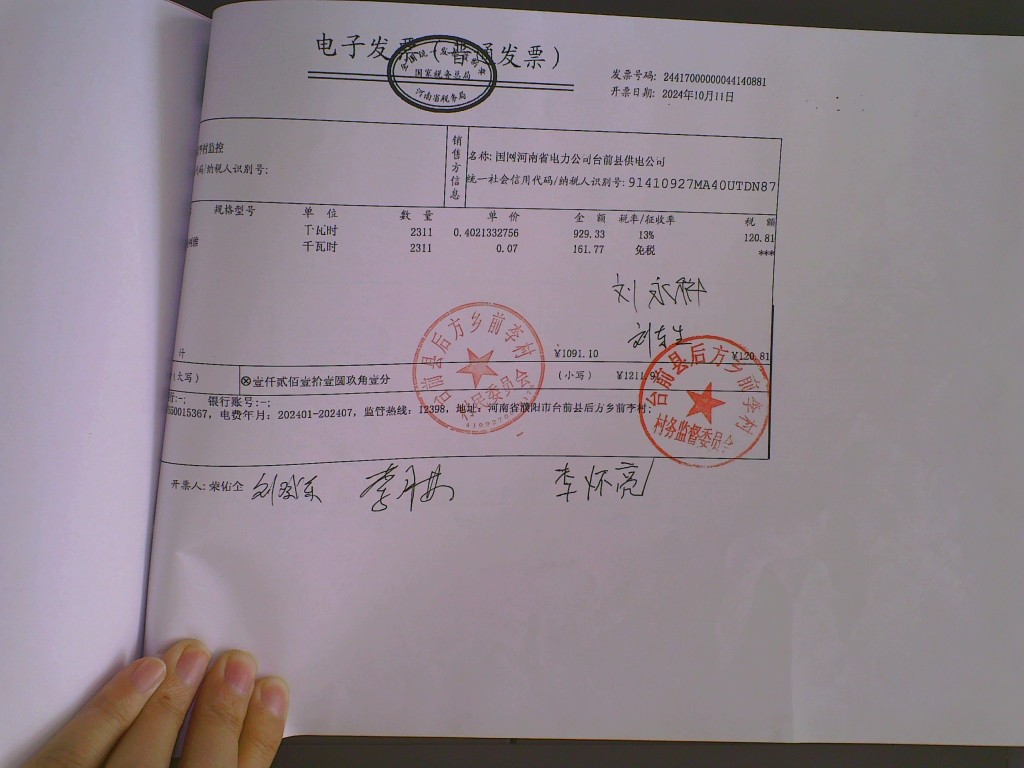 电子发票(普通发票)
国家税务总局
河南省税务局
发票号码: 24417000000044140881
开票日期: 2024年10月11日
村监控
销售方信息
名称: 国网河南省电力公司台前县供电公司
代码/纳税人识别号:
统一社会信用代码/纳税人识别号: 91410927MA40UTDN87
规格型号 单 位 数 量 单 价 金 额 税率/征收率 税 额
千瓦时 2311 0.4021332756 929.33 13% 120.81
千瓦时 2311 0.07 161.77 免税 ***
刘东生
计 ¥1091.10 ¥120.81
(大写) ⊗壹仟贰佰壹拾壹圆玖角壹分 (小写) ¥1211.9
行:-; 银行账号:-;
50015367, 电费年月: 202401-202407, 监管热线: 12398, 地址: 河南省濮阳市台前县后方乡前李村;
台前县后方乡前李村
村民委员会
台前县后方乡前李村
村务监督委员会
开票人: 荣佑全
李怀亮